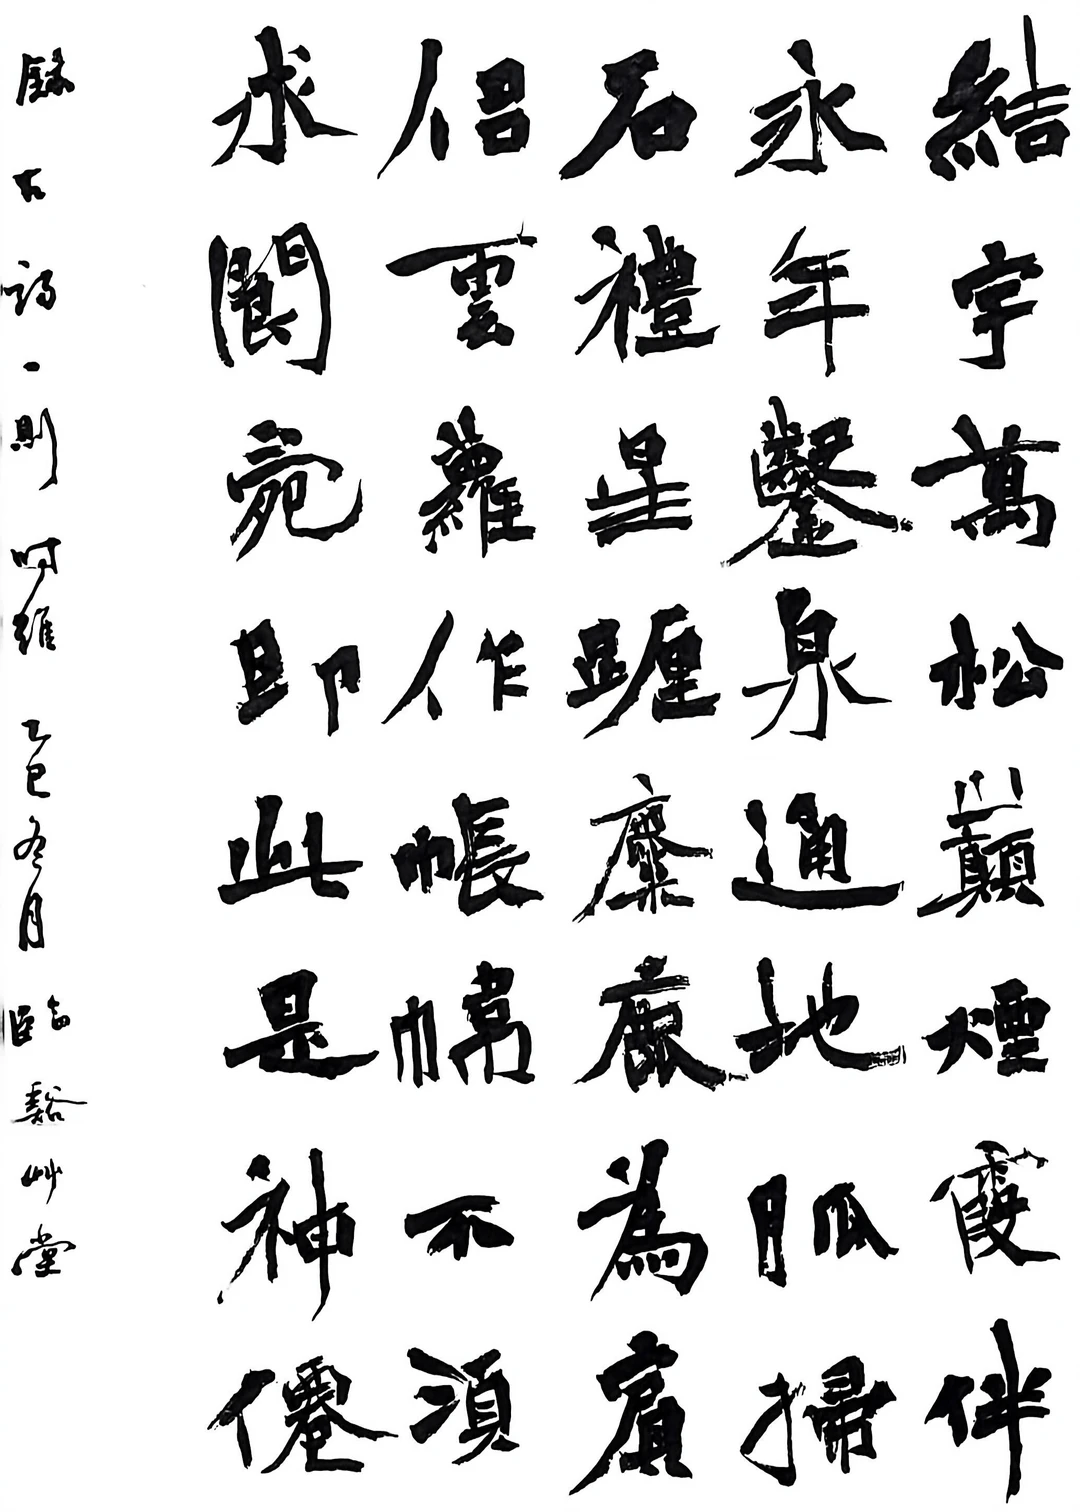 結宇萬松巔煙霞伴
永年鑿泉通地脈掃
石禮星躔麋鹿為賓
侶雲蘿作帳幃不須
求閬苑即此是神僊
錄古詩一則時維乙巳冬月臨谿艸堂